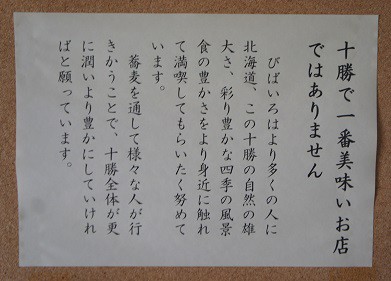 十勝で一番美味いお店
ではありません
びばいろはより多くの人に
北海道、この十勝の自然の雄
大さ、彩り豊かな四季の風景
食の豊かさをより身近に触れ
て満喫してもらいたく努めて
います。
蕎麦を通して様々な人が行
きかうことで、十勝全体が更
に潤いより豊かにしていけれ
ばと願っています。